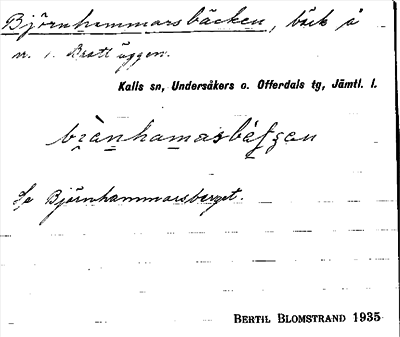 Björnhammarsbäcken, bäck å
n. i. Brattäggen.
Kalls sn, Undersåkers o. Offerdals tg, Jämtl. l.
Se Björnhammarsberget.
BERTIL BLOMSTRAND 1935